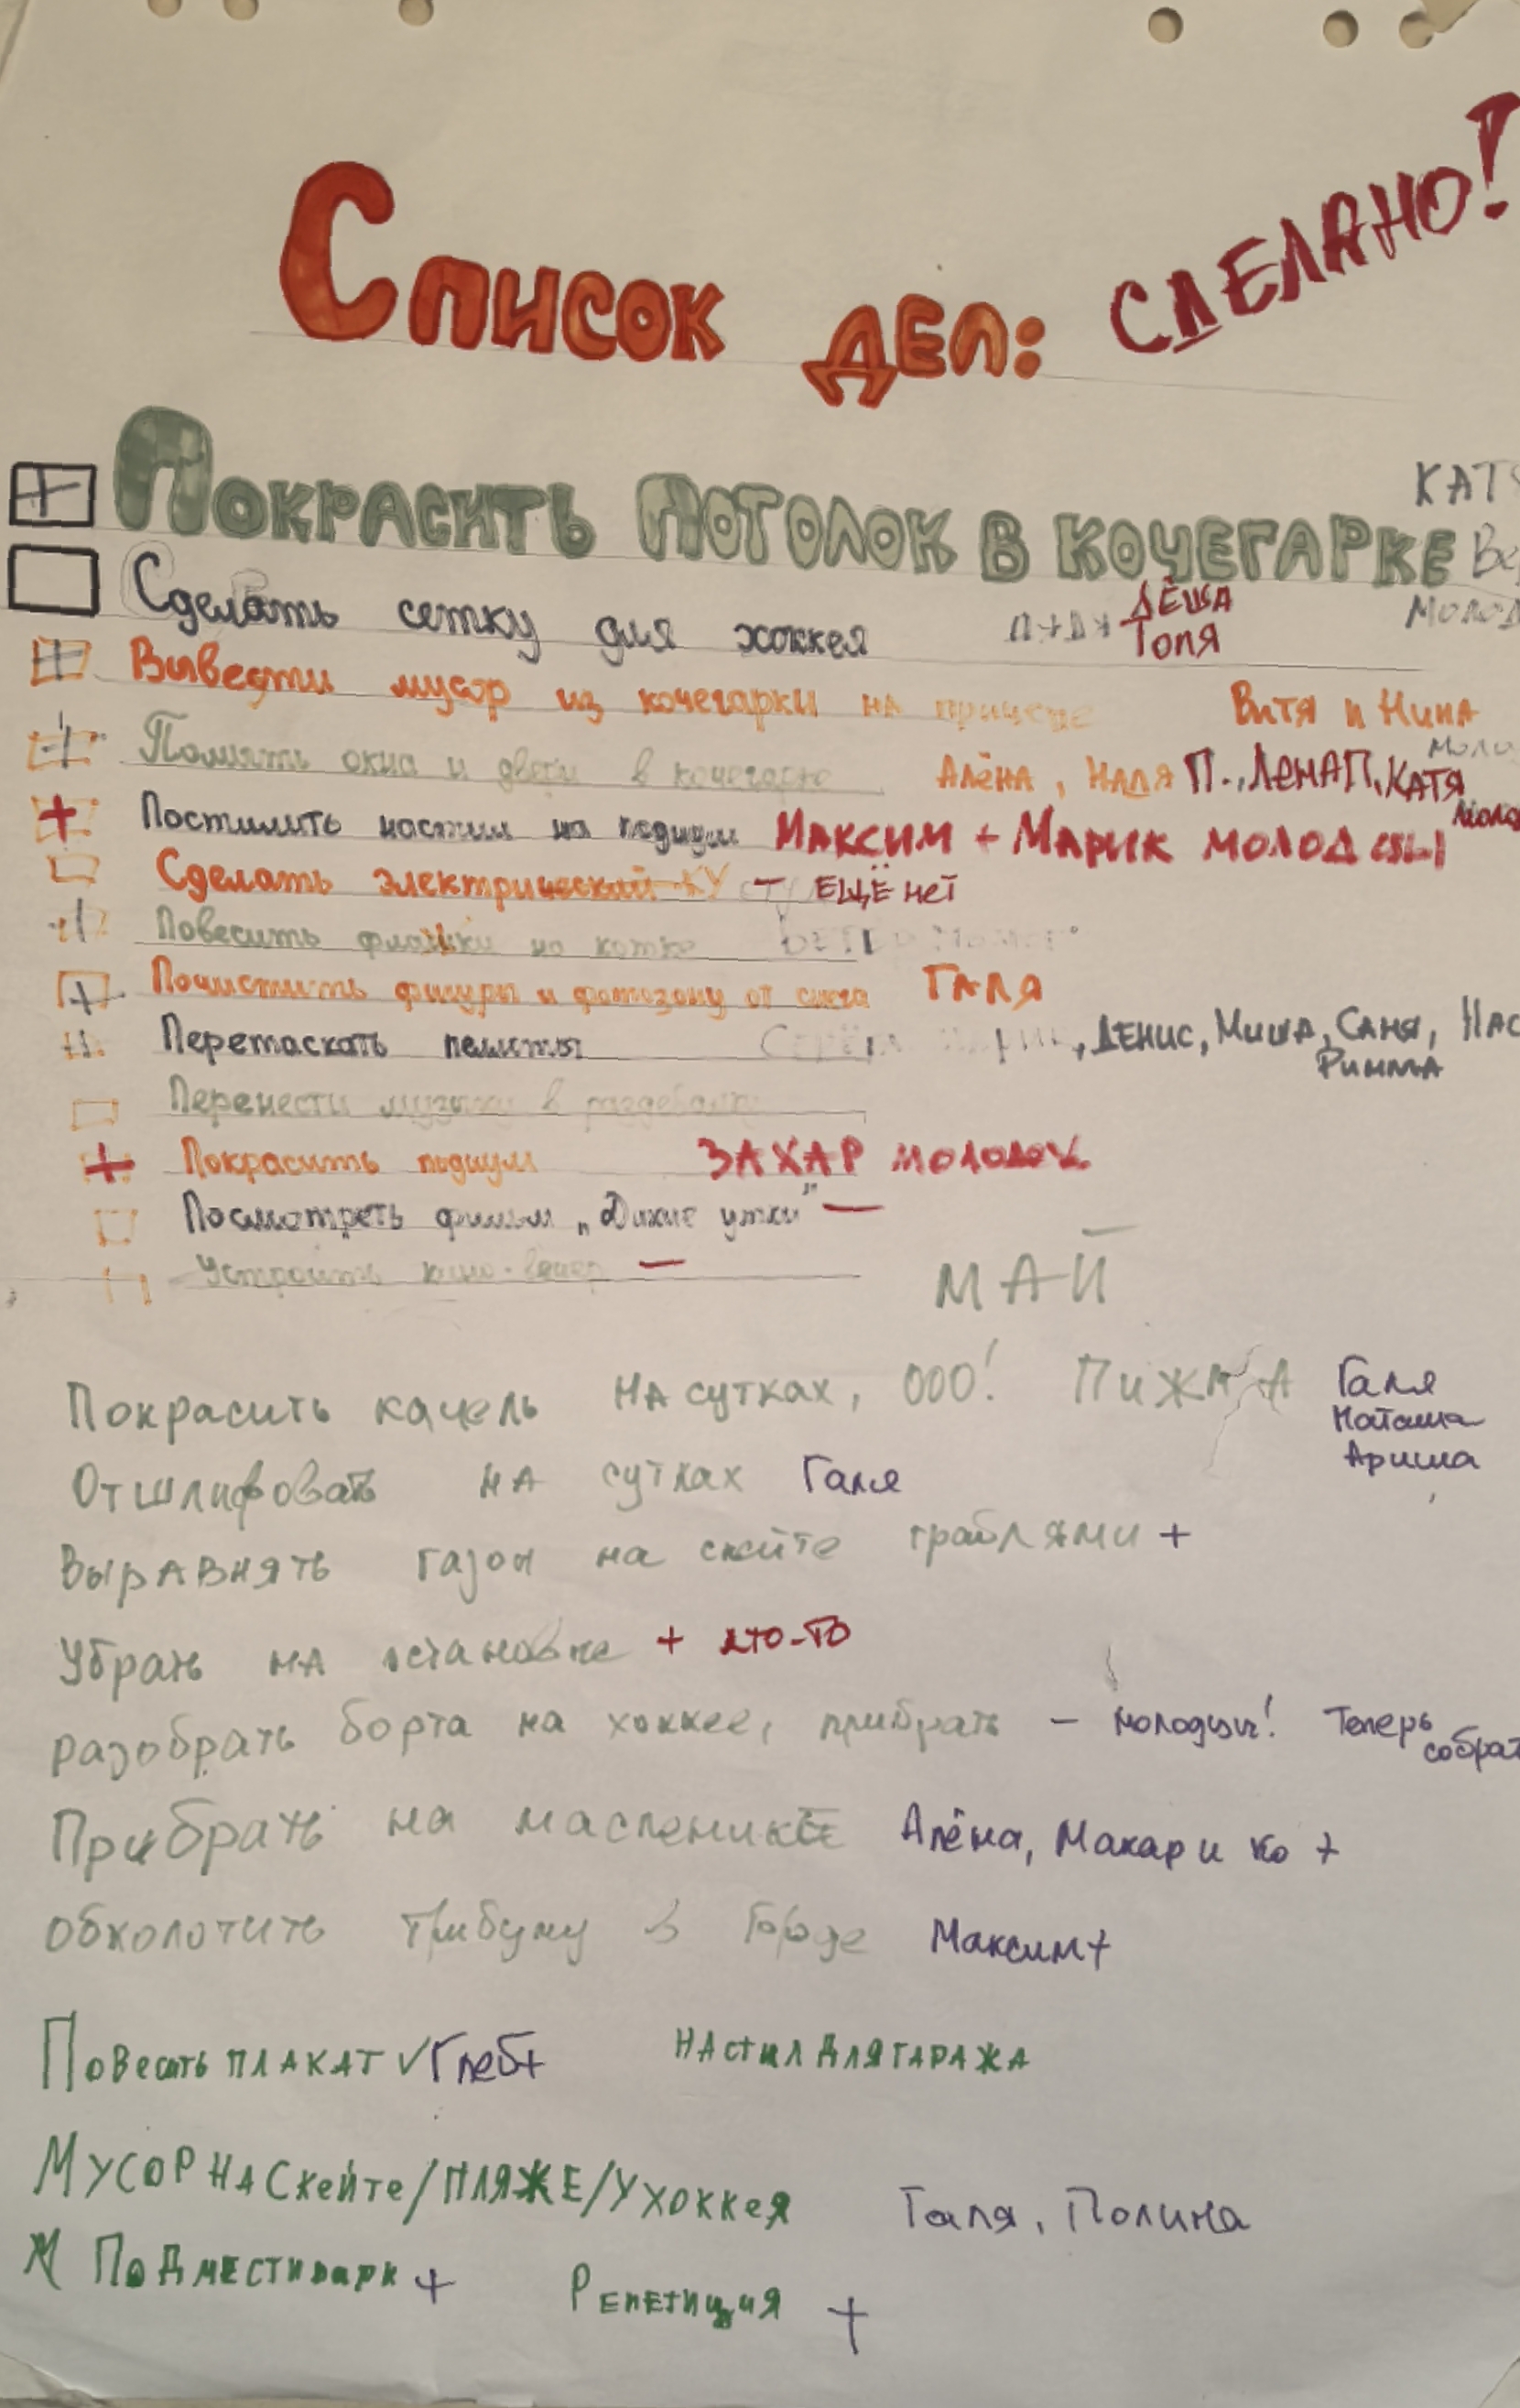 Список дел: СДЕЛАНО!
КАТЯ
+ Покрасить потолок в кочегарке
Сделать сетку для хоккея ЛЁША
Толя
+ Вывезти мусор из кочегарки на прицепе Витя и Нина
+ Помыть окна и двери в кочегарке Алёна, Надя П., Лена П, Катя
+ Постилить настил на подиум Максим + Марик молодцы
Сделать электрический - ЕЩЁ нет
+ Повесить флажки на катке ВЕТЕР
+ Почистить фигуры и фотозону от снега Галя
+ Перетаскать пеллеты , ДЕНИС, Миша, Саня,
Римма
Перенести музыку в раздевалку
+ Покрасить подиум ЗАХАР молодец
Посмотреть фильм „Дикие утки" —
Устроить кино-вечер —
МАЙ
Покрасить качель на сутках, ООО! ПИЖМА Галя
Наташа
Ариша
Отшлифовать на сутках Галя
Выравнять газон на скейте граблями +
Убрать на остановке + кто-то
разобрать борта на хоккее, прибрать - молодцы! Теперь
собрать
Прибрать на масленке Алёна, Макар и Ко +
Обколотить трибуну в Городе Максим +
Повесить плакат ✓ Глеб + Настил для гаража
Мусор на скейте/пляже/у хоккея Галя, Полина
Подмести парк + Репетиция +